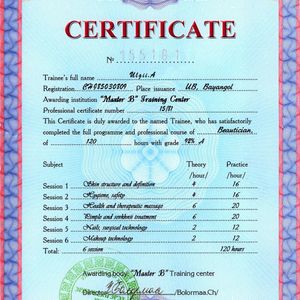 CERTIFICATE
Trainee's full name Ulzii.A
Registration Place issuance UB, Bayangol
Awarding institution "Master B" Training Center
Professional certificate number 15/81
This Certificate is duly awarded to the named Trainee, who has satisfactorily
completed the full programme and professional course of Beautician
of 120 hours with grade 98% A
Subject Theory Practice
/hour/ /hour/
Session 1 Skin structure and definition 4 16
Session 2 Hygiene, safety 4 16
Session 3 Health and therapeutic massage 6 20
Session 4 Pimple and treatment 6 20
Session 5 Nails, surgical technology 2 12
Session 6 Makeup technology 2 12
Total: 6 session 120 hours
Awarding body "Master B" Training center
Director /Bolormaa.Ch/